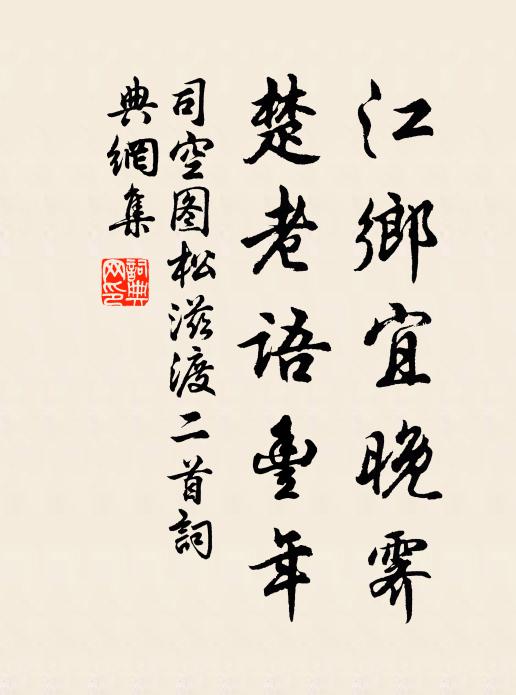 江鄉宜晚霽
楚老語豐年
司空图松滋渡二首詞
典網集
詞典网印